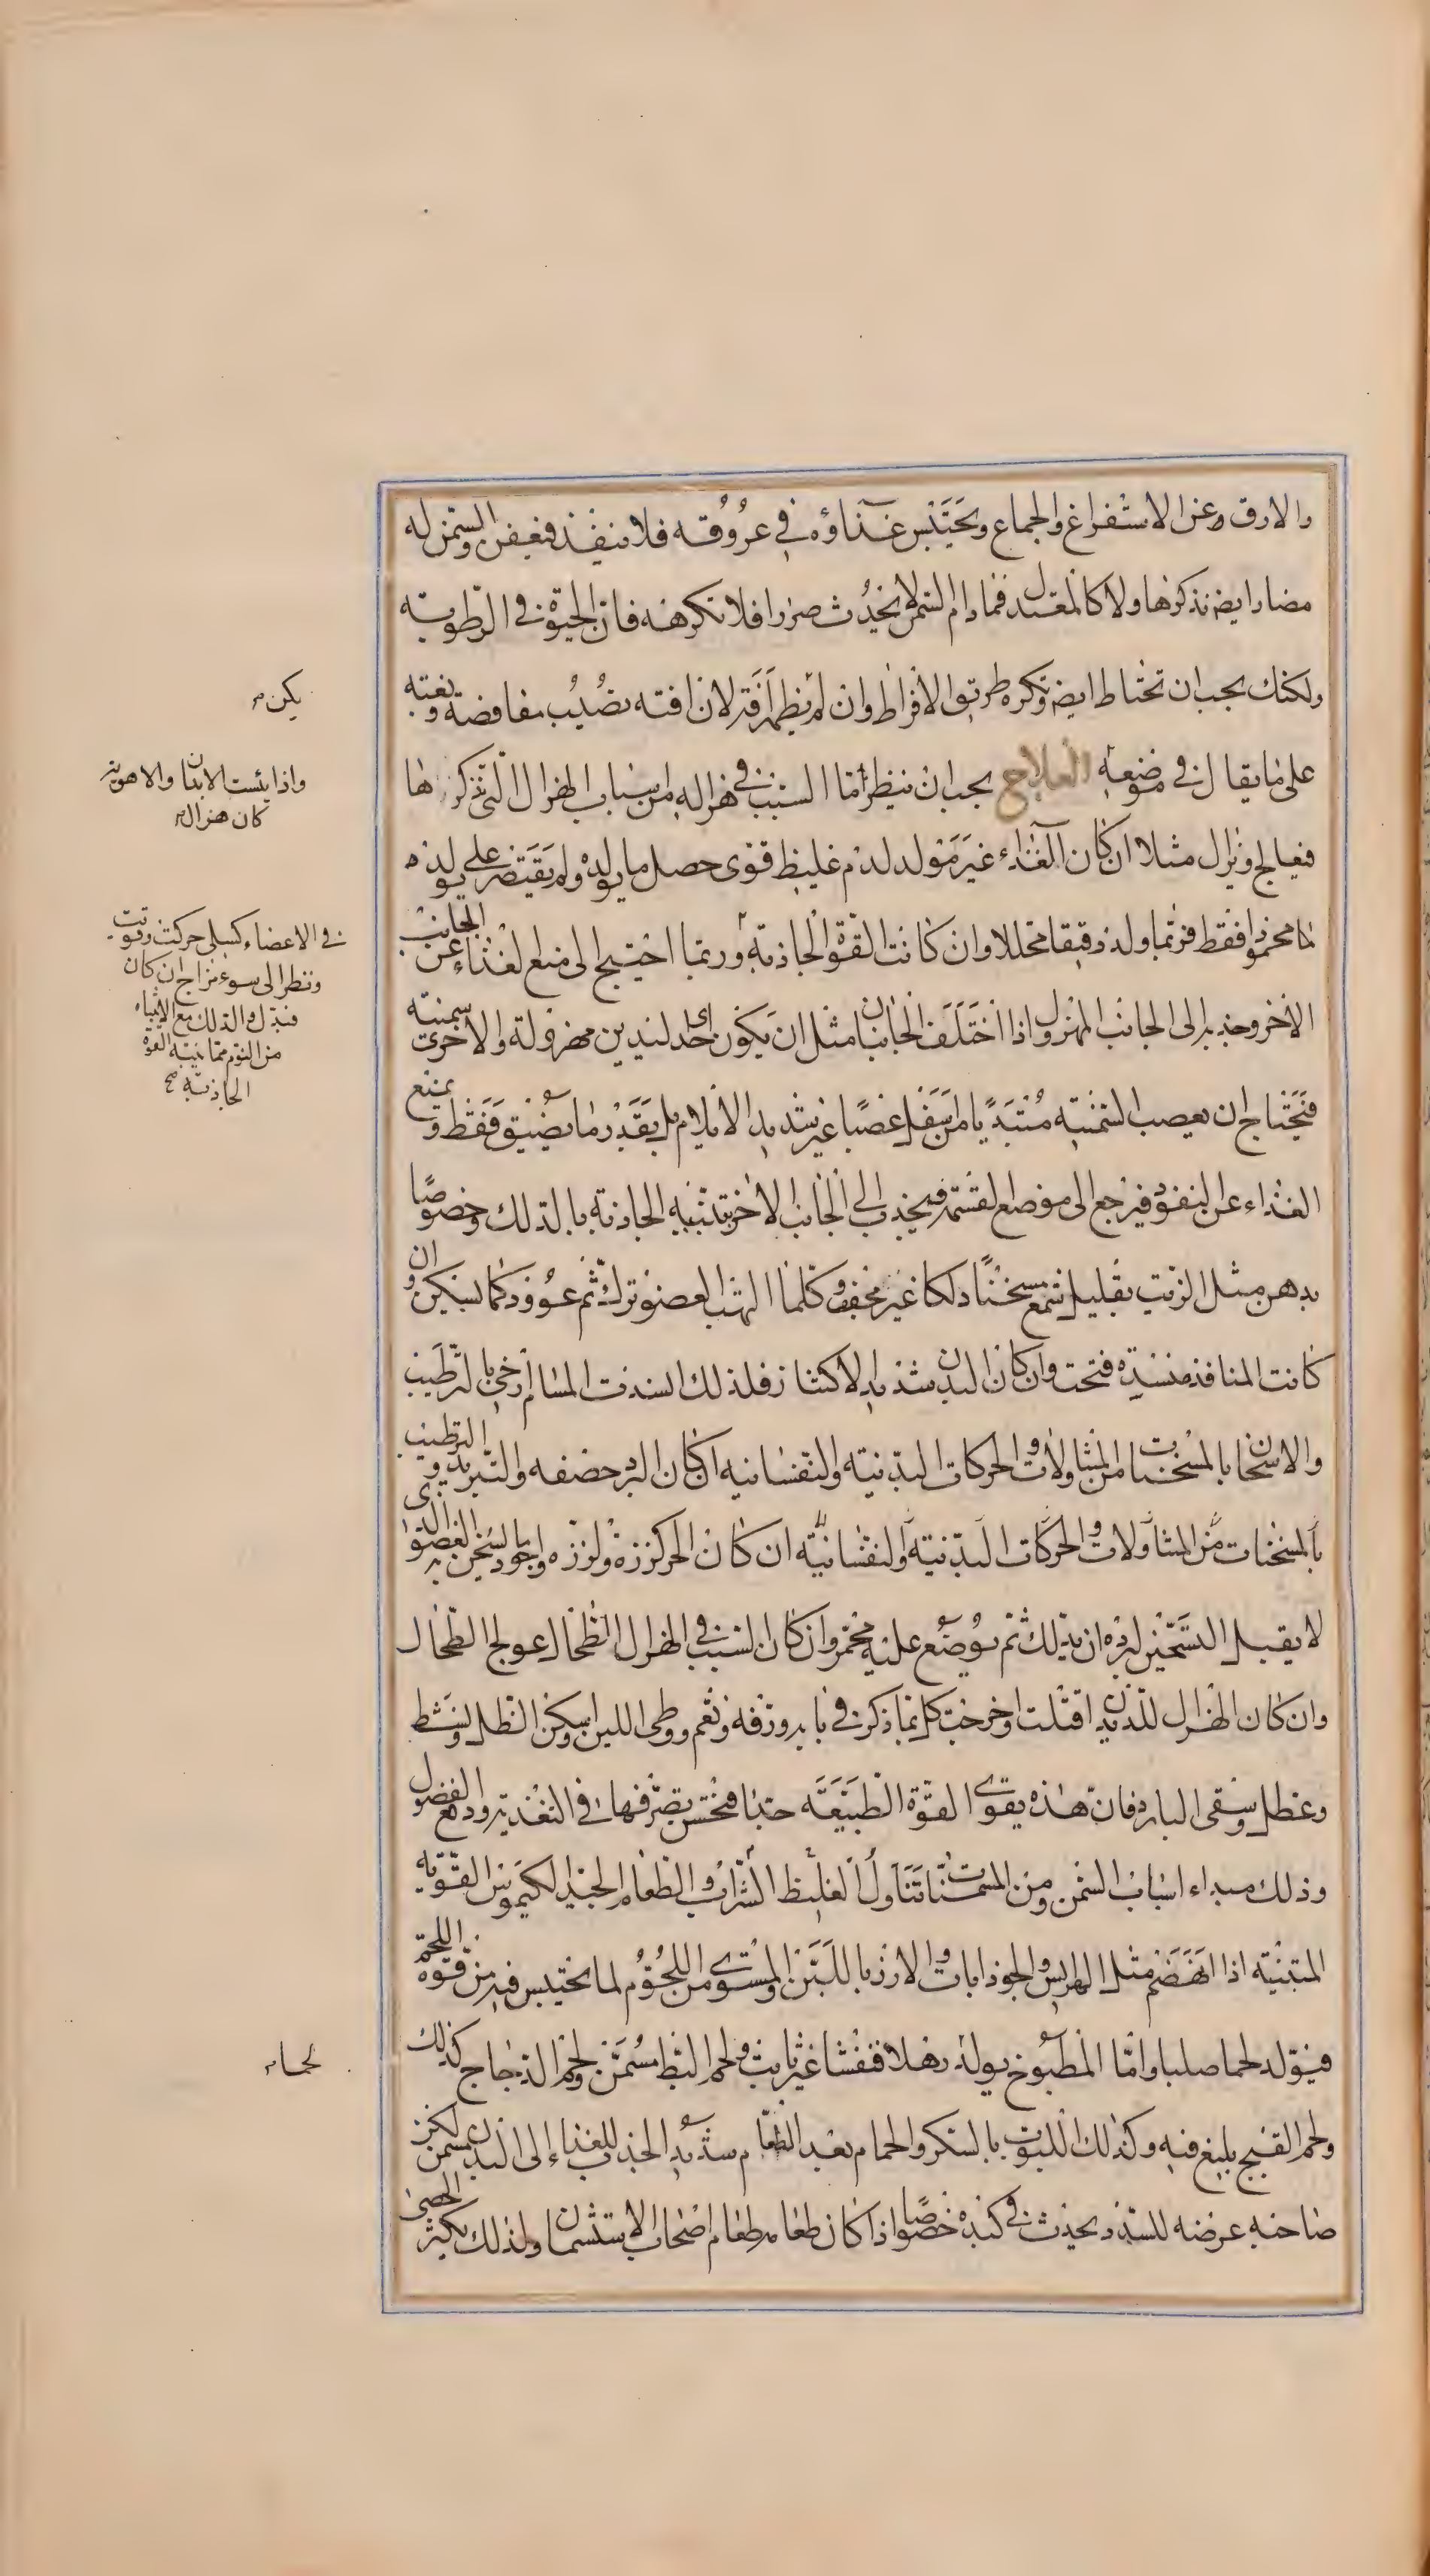 والارق وعن الاستفراغ والجماع ويحتبس غذاؤه في عروقه فلا ينفذ فيعفن والسمن له
مضار ايضا نذكرها ولا كالمعتدل فما دام السمن لا يحدث ضررا فلا نكرهنه فان الحيوة في الرطوبة
ولكنك يجب ان تحتاط ايضا وتكره طريق الافراط وان لم يظهر آفة لان افته تصيب مغافصة وبغتة
على ما يقال في موضعه العلاج يجب ان ينظر اما السبب في هزاله من اسباب الهزال التي نذكرها
فيعالج ويزال مثلا ان كان الغذاء غير مولد لدم غليظ قوى حصل ما يولده ولم يقتصر على ما يولد دما
محمودا فقط فربما ولد دقيقا محللا وان كانت القوة الجاذبة وربما احتيج الى منع الغذاء عن الجانب
الآخر وجذبه الى الجانب المهزول واذا اختلف الجانبان مثل ان يكون احدى اليدين مهزولة والاخرى سمينة
فتحتاج ان يعصب السمينة مبتديا من اسفل عصبا غير شديد الايلام بل بقدر ما يضيق فقط ويمنع
الغذاء عن النفوذ فيرجع الى موضع القسمة فيجذب الى الجانب الاخر بتنبيه الجاذبة بالدلك وخصوصا
بدهن مثل الزيت بقليل شمع مسخنا دلكا غير مجفف وكلما التهب العضو ترك ثم عوود كما يسكن وان
كانت المنافذ منسدة فتحت وان كان البدن شديد الاكتناز فلذلك انسدت المسام ارخى بالترطيب
والاسخان بالمسخنات من المتناولات والحركات البدنية والنفسانية ان كان البرد حصفه والتبريد والترطيب
بالمسخنات من المتناولات والحركات البدنية والنفسانية ان كان الحر كززه ولززه واجود ما يسخن به العضو الذى
لا يقبل التسمين لبرده ان يدلك ثم يوضع عليه محمر وان كان السبب في الهزال الطحال عولج الطحال
وان كان الهزال للديدان قتلت واخرجت كل بما ذكر في بابه ورفه ونعم ووطى اللين وسكن الظل ونشط
وعطل وسقى البارد فان هذه يقوى القوة الطبيعة جدا فيحسن تصرفها في التغذية ودفع الفضول
وذلك مبداء اسباب السمن ومن المسمنات تناول الغليظ الشراب والطعام الجيد الكيموس القوية
المتينة اذا انهضم مثل الهريس والجوذابات والارز باللبن والمشوى من اللحوم لما يحتبس فيه من قوة اللحم
فيولد لحما صلبا واما المطبوخ يولد رهلا قفشا غير ثابت ولحم البط مسمن ولحم الدجاج كذلك
ولحم القبج بليغ فيه وكذلك اللبوب بالسكر والحمام بعد الطعام شديد الجذب للغذاء الى البدن مسمن لكن
صاحبه عرضة للسدد يحدث في كبده خصوصا اذا كان طعامه طعام اصحاب الاستسمان ولذلك يكثر الحصى
يكن
واذا يئست الابدان والاهوية
كان هزال
في الاعضاء كسلى حركت وقويت
ونظر الى سوء مزاج ان كان
فبدل والدلك مع الانتباه
من النوم مما ينبه القوة
الجاذبة صح
لحما